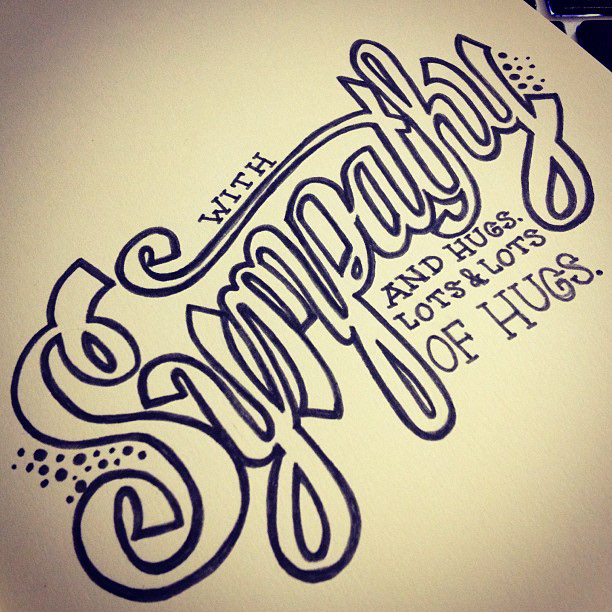 WITH
Sympathy
AND HUGS.
LOTS & LOTS
OF HUGS.